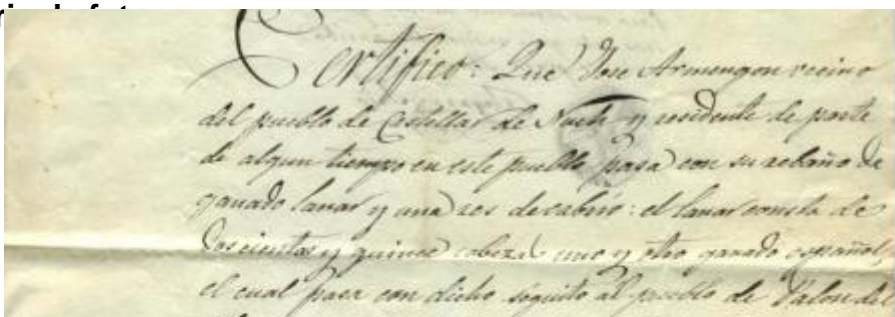 Certifico: Que Jose Armengou vecino
del pueblo de Castellar de Nuch y residente de parte
de algun tiempo en este pueblo pasa con su rebaño de
ganado lanar y una res de cabrio: el lanar consta de
Doscientas y quince cabezas uno y otro ganado español,
el cual pasa con dicho seguito al pueblo de